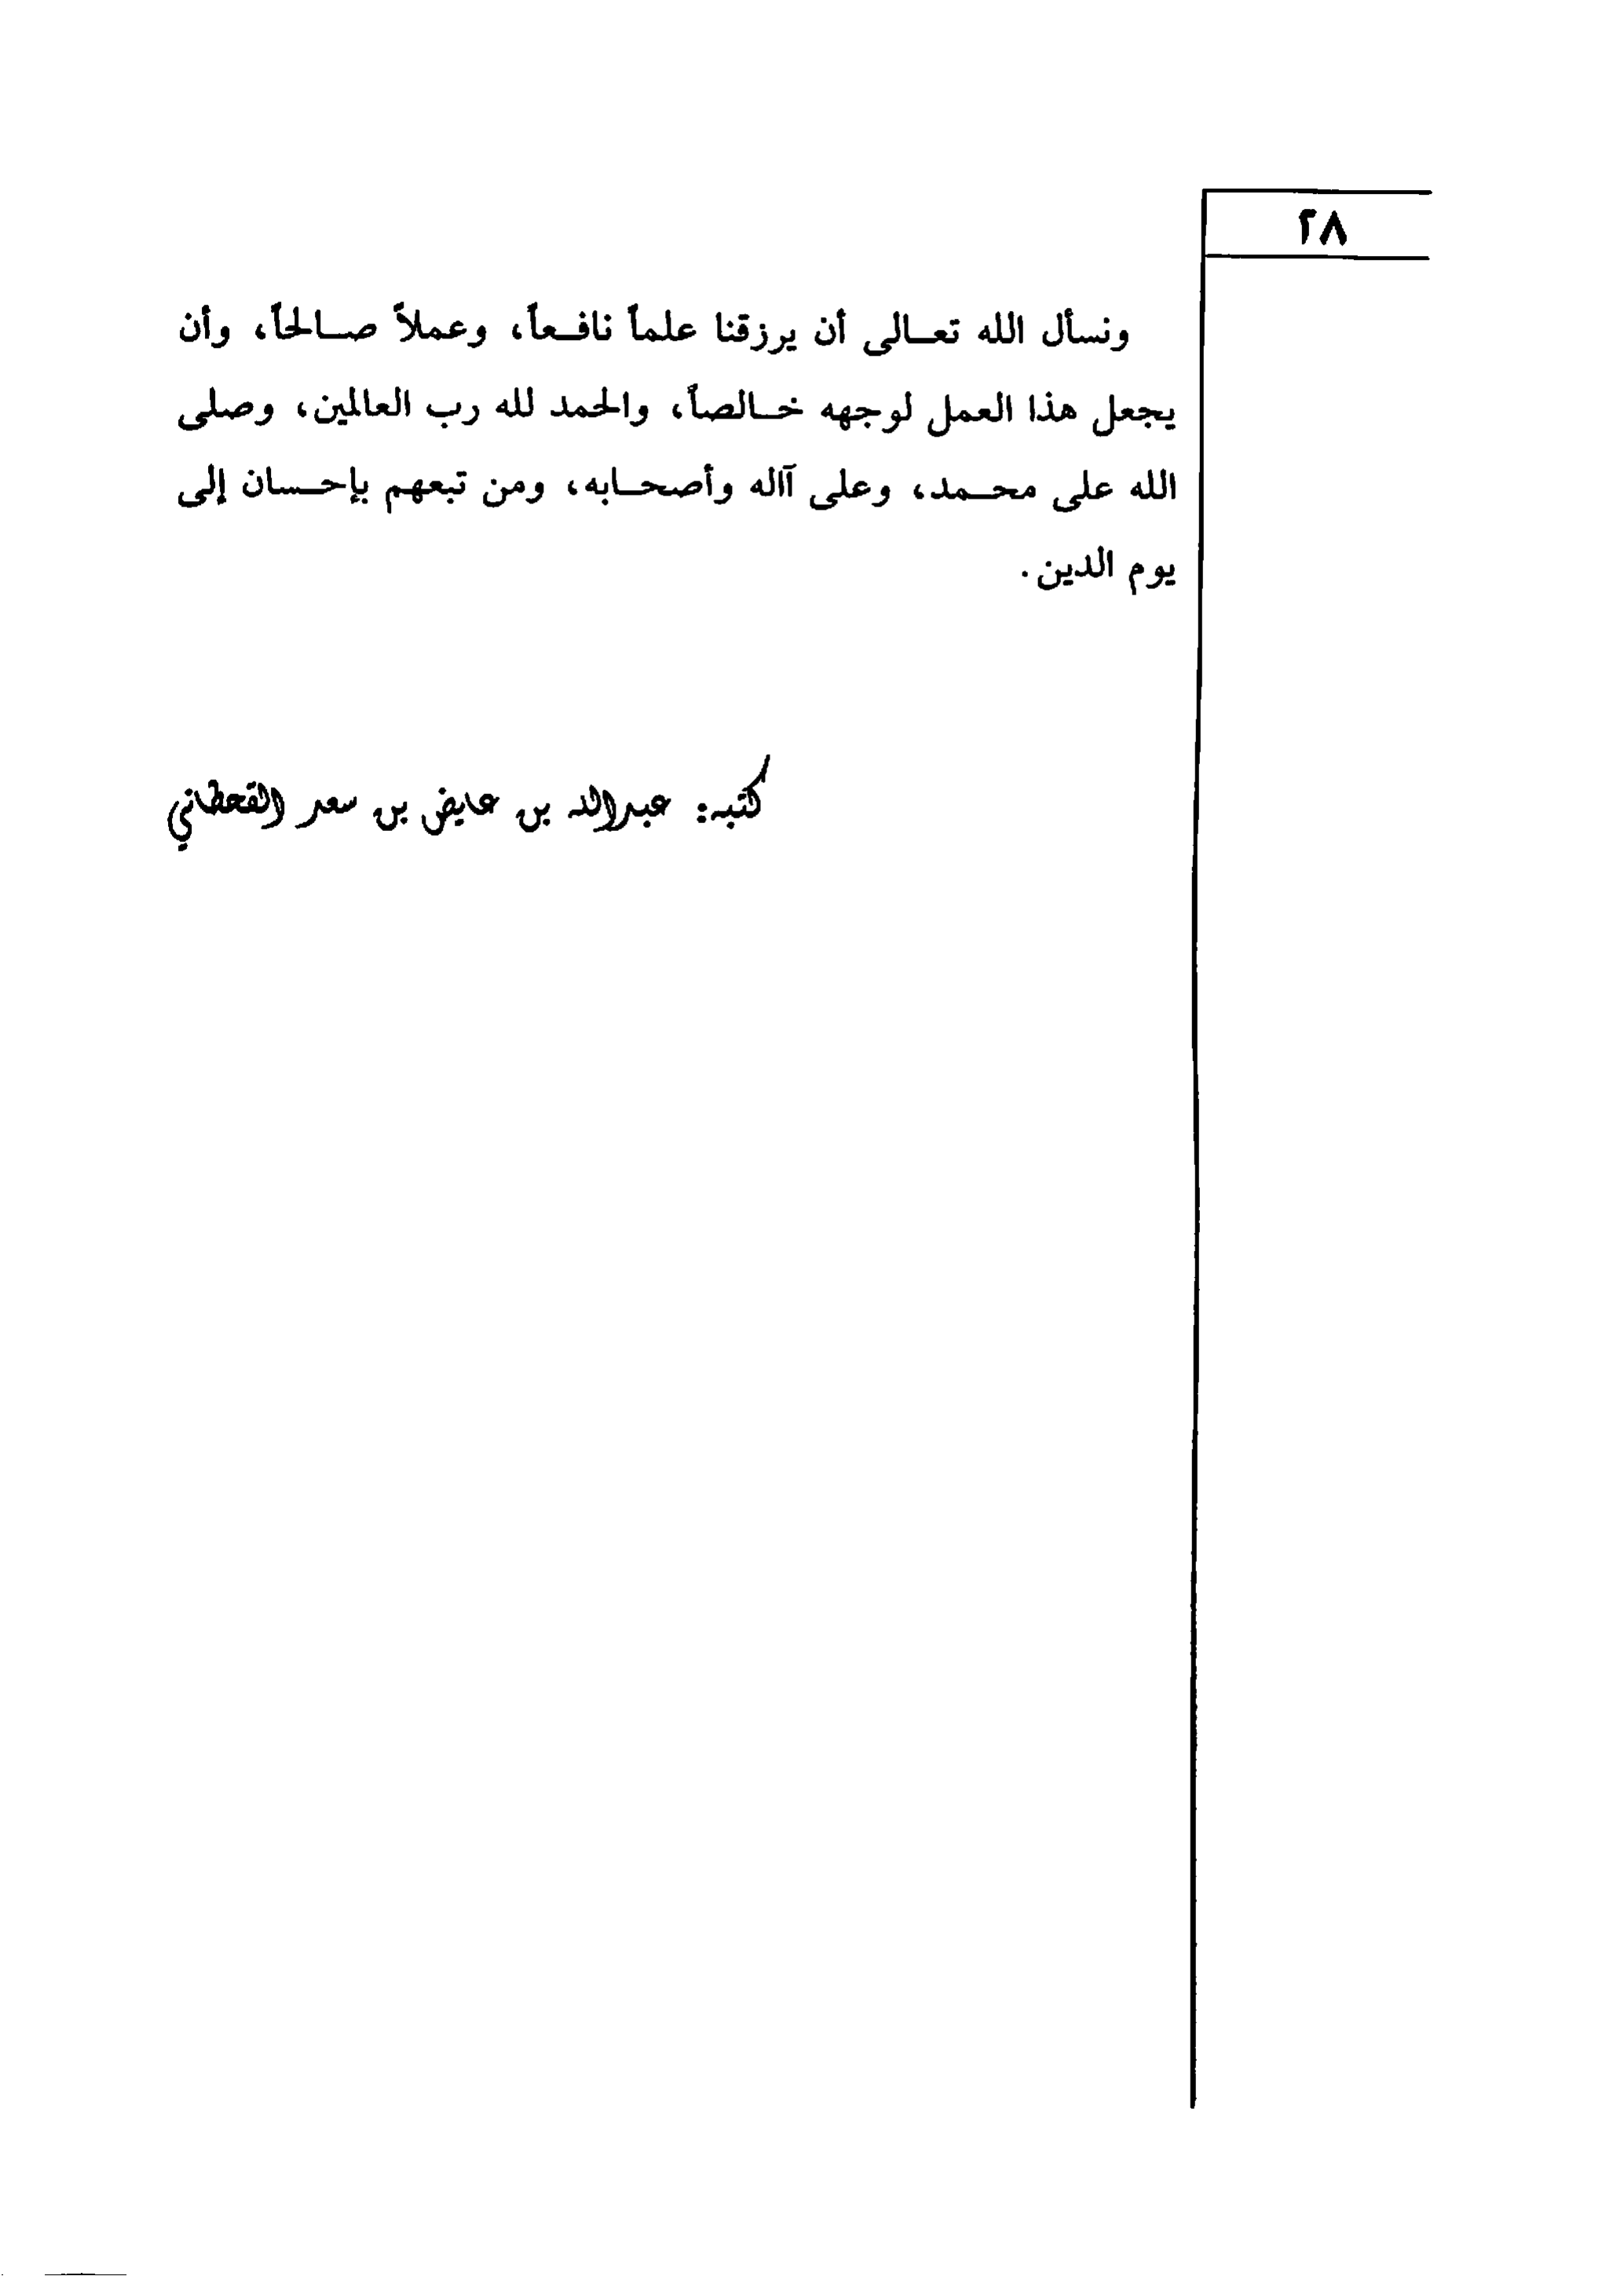 ٢٨
ونسأل الله تعالى أن يرزقنا علماً نافعاً، وعملاً صالحاً، وأن
يجعل هذا العمل لوجهه خالصاً، والحمد لله رب العالمين، وصلى
الله على محمد، وعلى آاله وأصحابه، ومن تبعهم بإحسان إلى
يوم الدين.
كتبه: عبدالله بن عايض بن سعد القحطاني